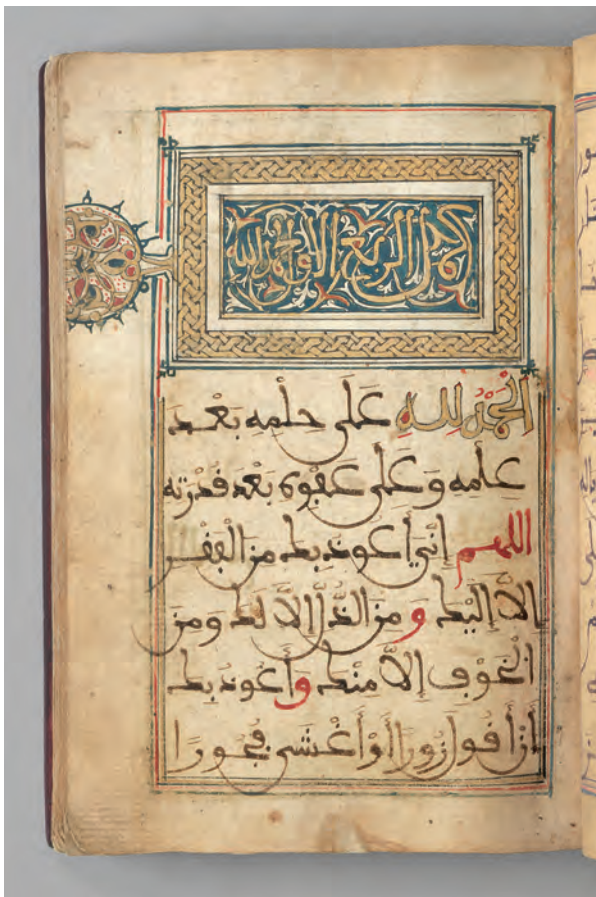 كمل الربع الاول والحمد لله
الْحَمْدُ لِلهِ عَلَى حِلْمِهِ بَعْدَ
عِلْمِهِ وَعَلَى عَفْوِهِ بَعْدَ قُدْرَتِهِ
اللهم إِنِّي أَعُوذُ بِكَ مِنَ الْفَقْرِ
إِلاَّ إِلَيْكَ وَمِنَ الذُّلِّ إِلاَّ لَكَ وَمِنَ
الْخَوْفِ إِلاَّ مِنْكَ وَأَعُوذُ بِكَ
أَنْ أَقُولَ زُورًا أَوْ أَغْشَى فُجُورًا